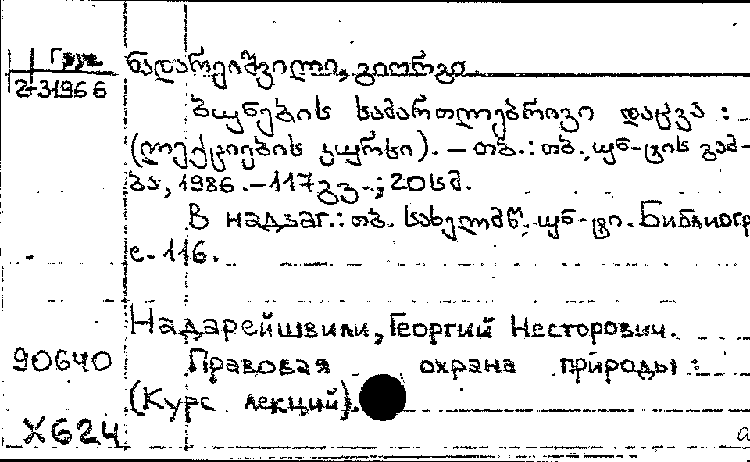 Груз
2-31966
ნადარეიშვილი, გიორგი
ბუნების სამართლებრივი დაცვა :
(ლექციების კურსი). – თბ. : თბ. უნ-ტის გამ-
ბა, 1986. – 117 გვ. ; 20 სმ.
В надзаг.: თბ. სახელმწ. უნ-ტი. Библиогр.
с. 116.
Надарейшвили, Георгий Несторович.
90640 Правовая охрана природы :
(Курс лекций).
X624